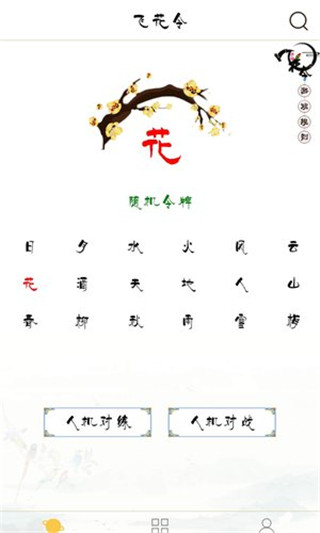 飞花令
花
随机令牌
日 夕 水 火 风 云
花 酒 天 地 人 山
春 柳 秋 雨 雪 梅
人机对练 人机对战